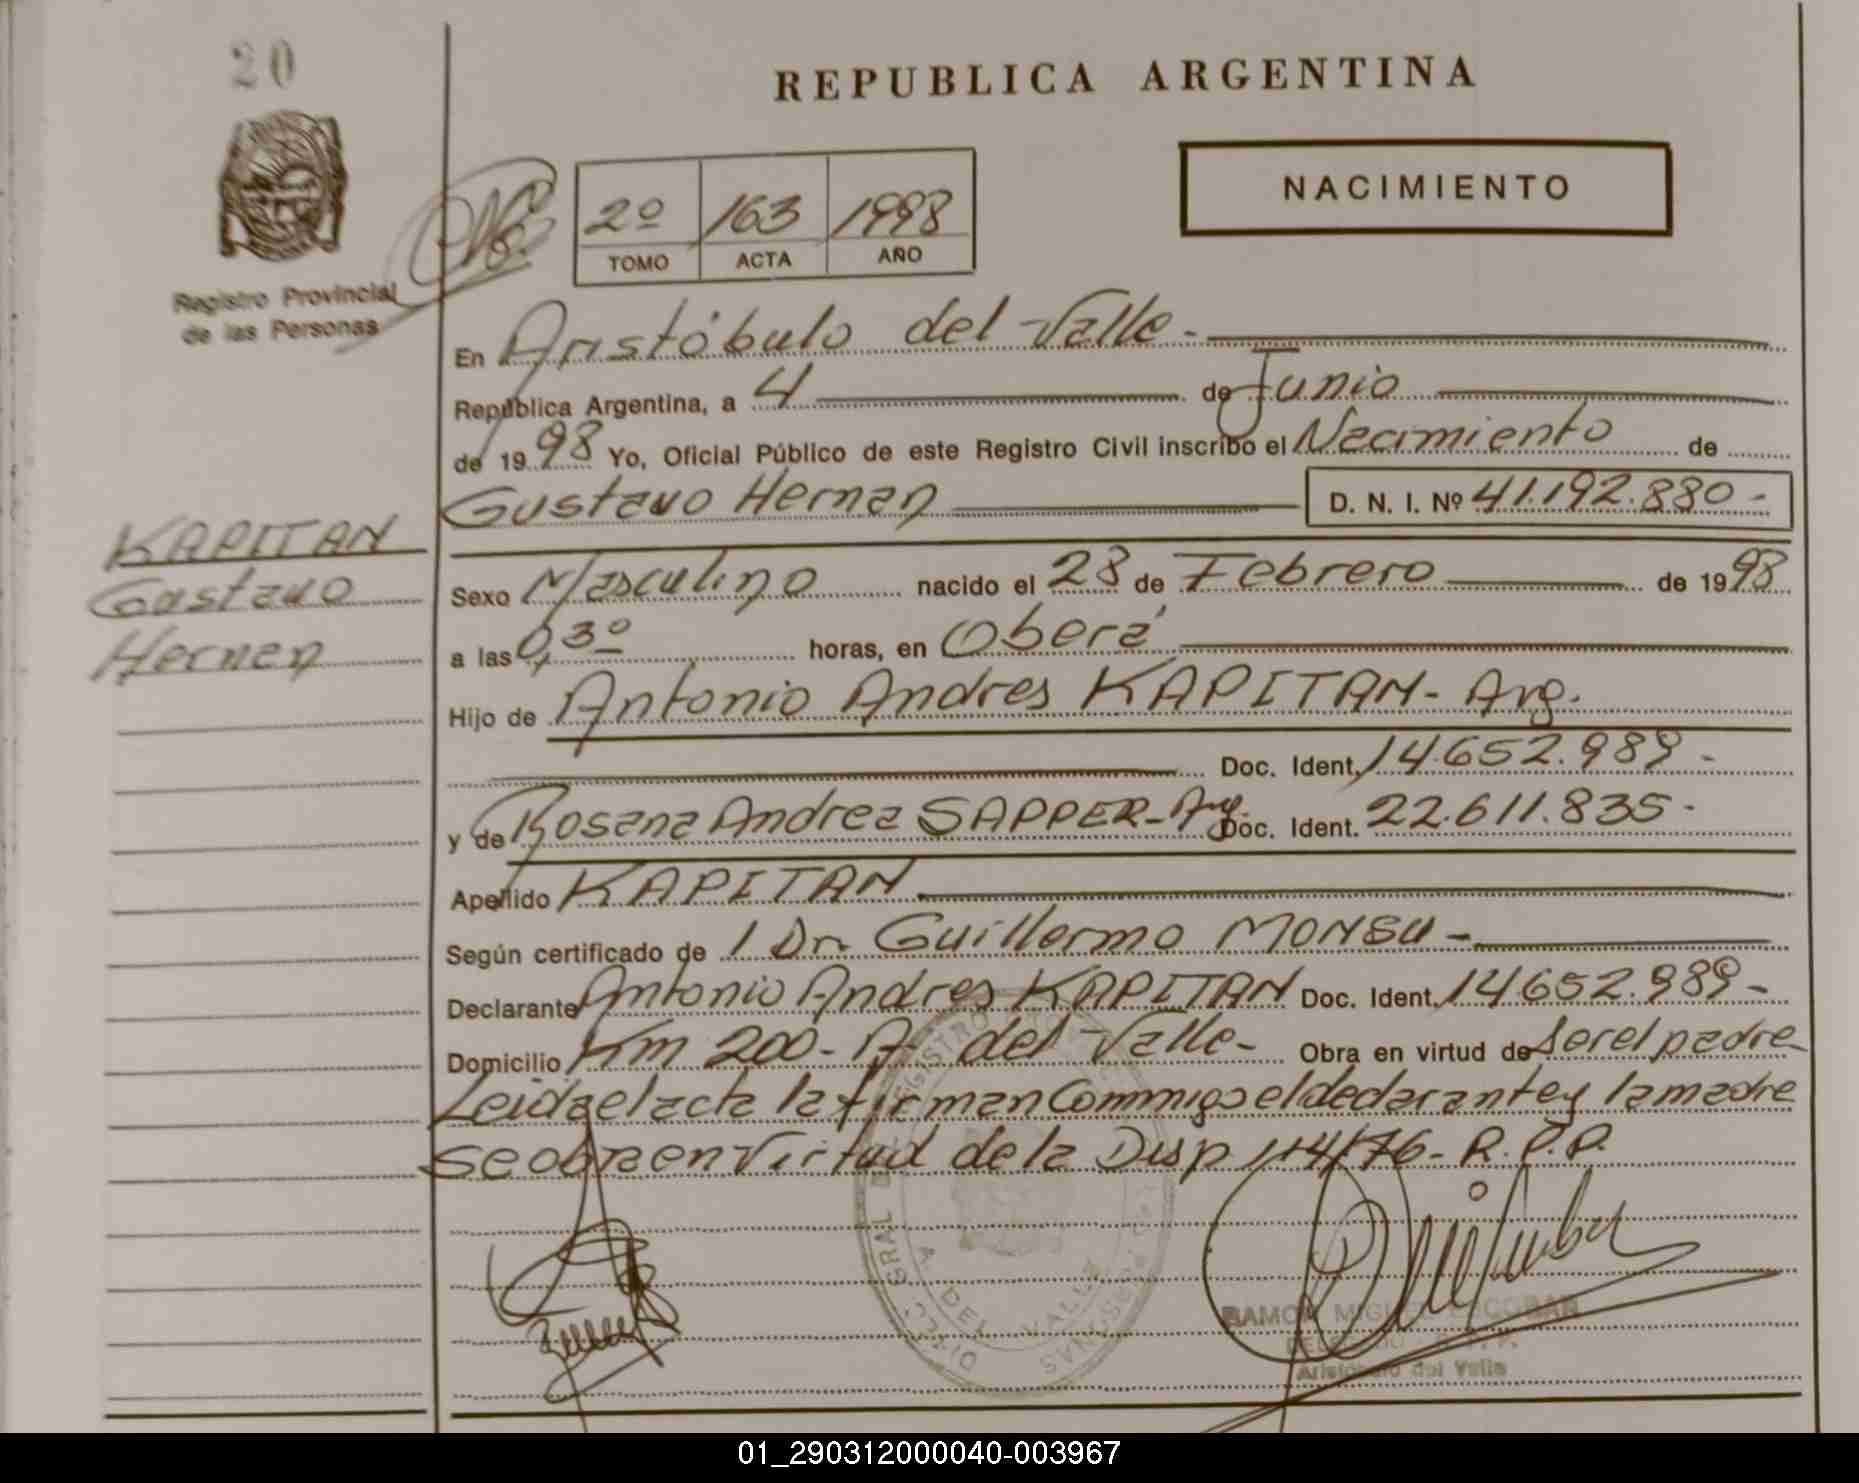 20
REPUBLICA ARGENTINA
NACIMIENTO
2º 163 1998
TOMO ACTA AÑO
Registro Provincial
de las Personas
En Aristóbulo del Valle-
República Argentina, a 4 de Junio
de 1998 Yo, Oficial Público de este Registro Civil inscribo el Nacimiento de
Gustavo Hernan D. N. I. Nº 41.192.880-
KAPITAN
Gustavo
Hernan
Sexo Masculino nacido el 28 de Febrero de 1998
a las 0,3º horas, en Oberá
Hijo de Antonio Andres KAPITAN- Arg.
Doc. Ident. 14.652.989-
y de Rosana Andrea SAPPER-Arg. Doc. Ident. 22.611.835-
Apellido KAPITAN
Según certificado de 1 Dr. Guillermo MONSU-
Declarante Antonio Andres KAPITAN Doc. Ident. 14652.989-
Domicilio Km 200- A. del Valle- Obra en virtud de Ser el padre
Leida el acta la firman Conmigo el declarante y la madre
se obra en Virtud de la Disp 114/76- R.P.P.
DIREC. GRAL DEL REGISTRO PERSONAS
A. DEL VALLE
RAMON MIGUEL ESCOBAR
Aristóbulo del Valle
01_290312000040-003967